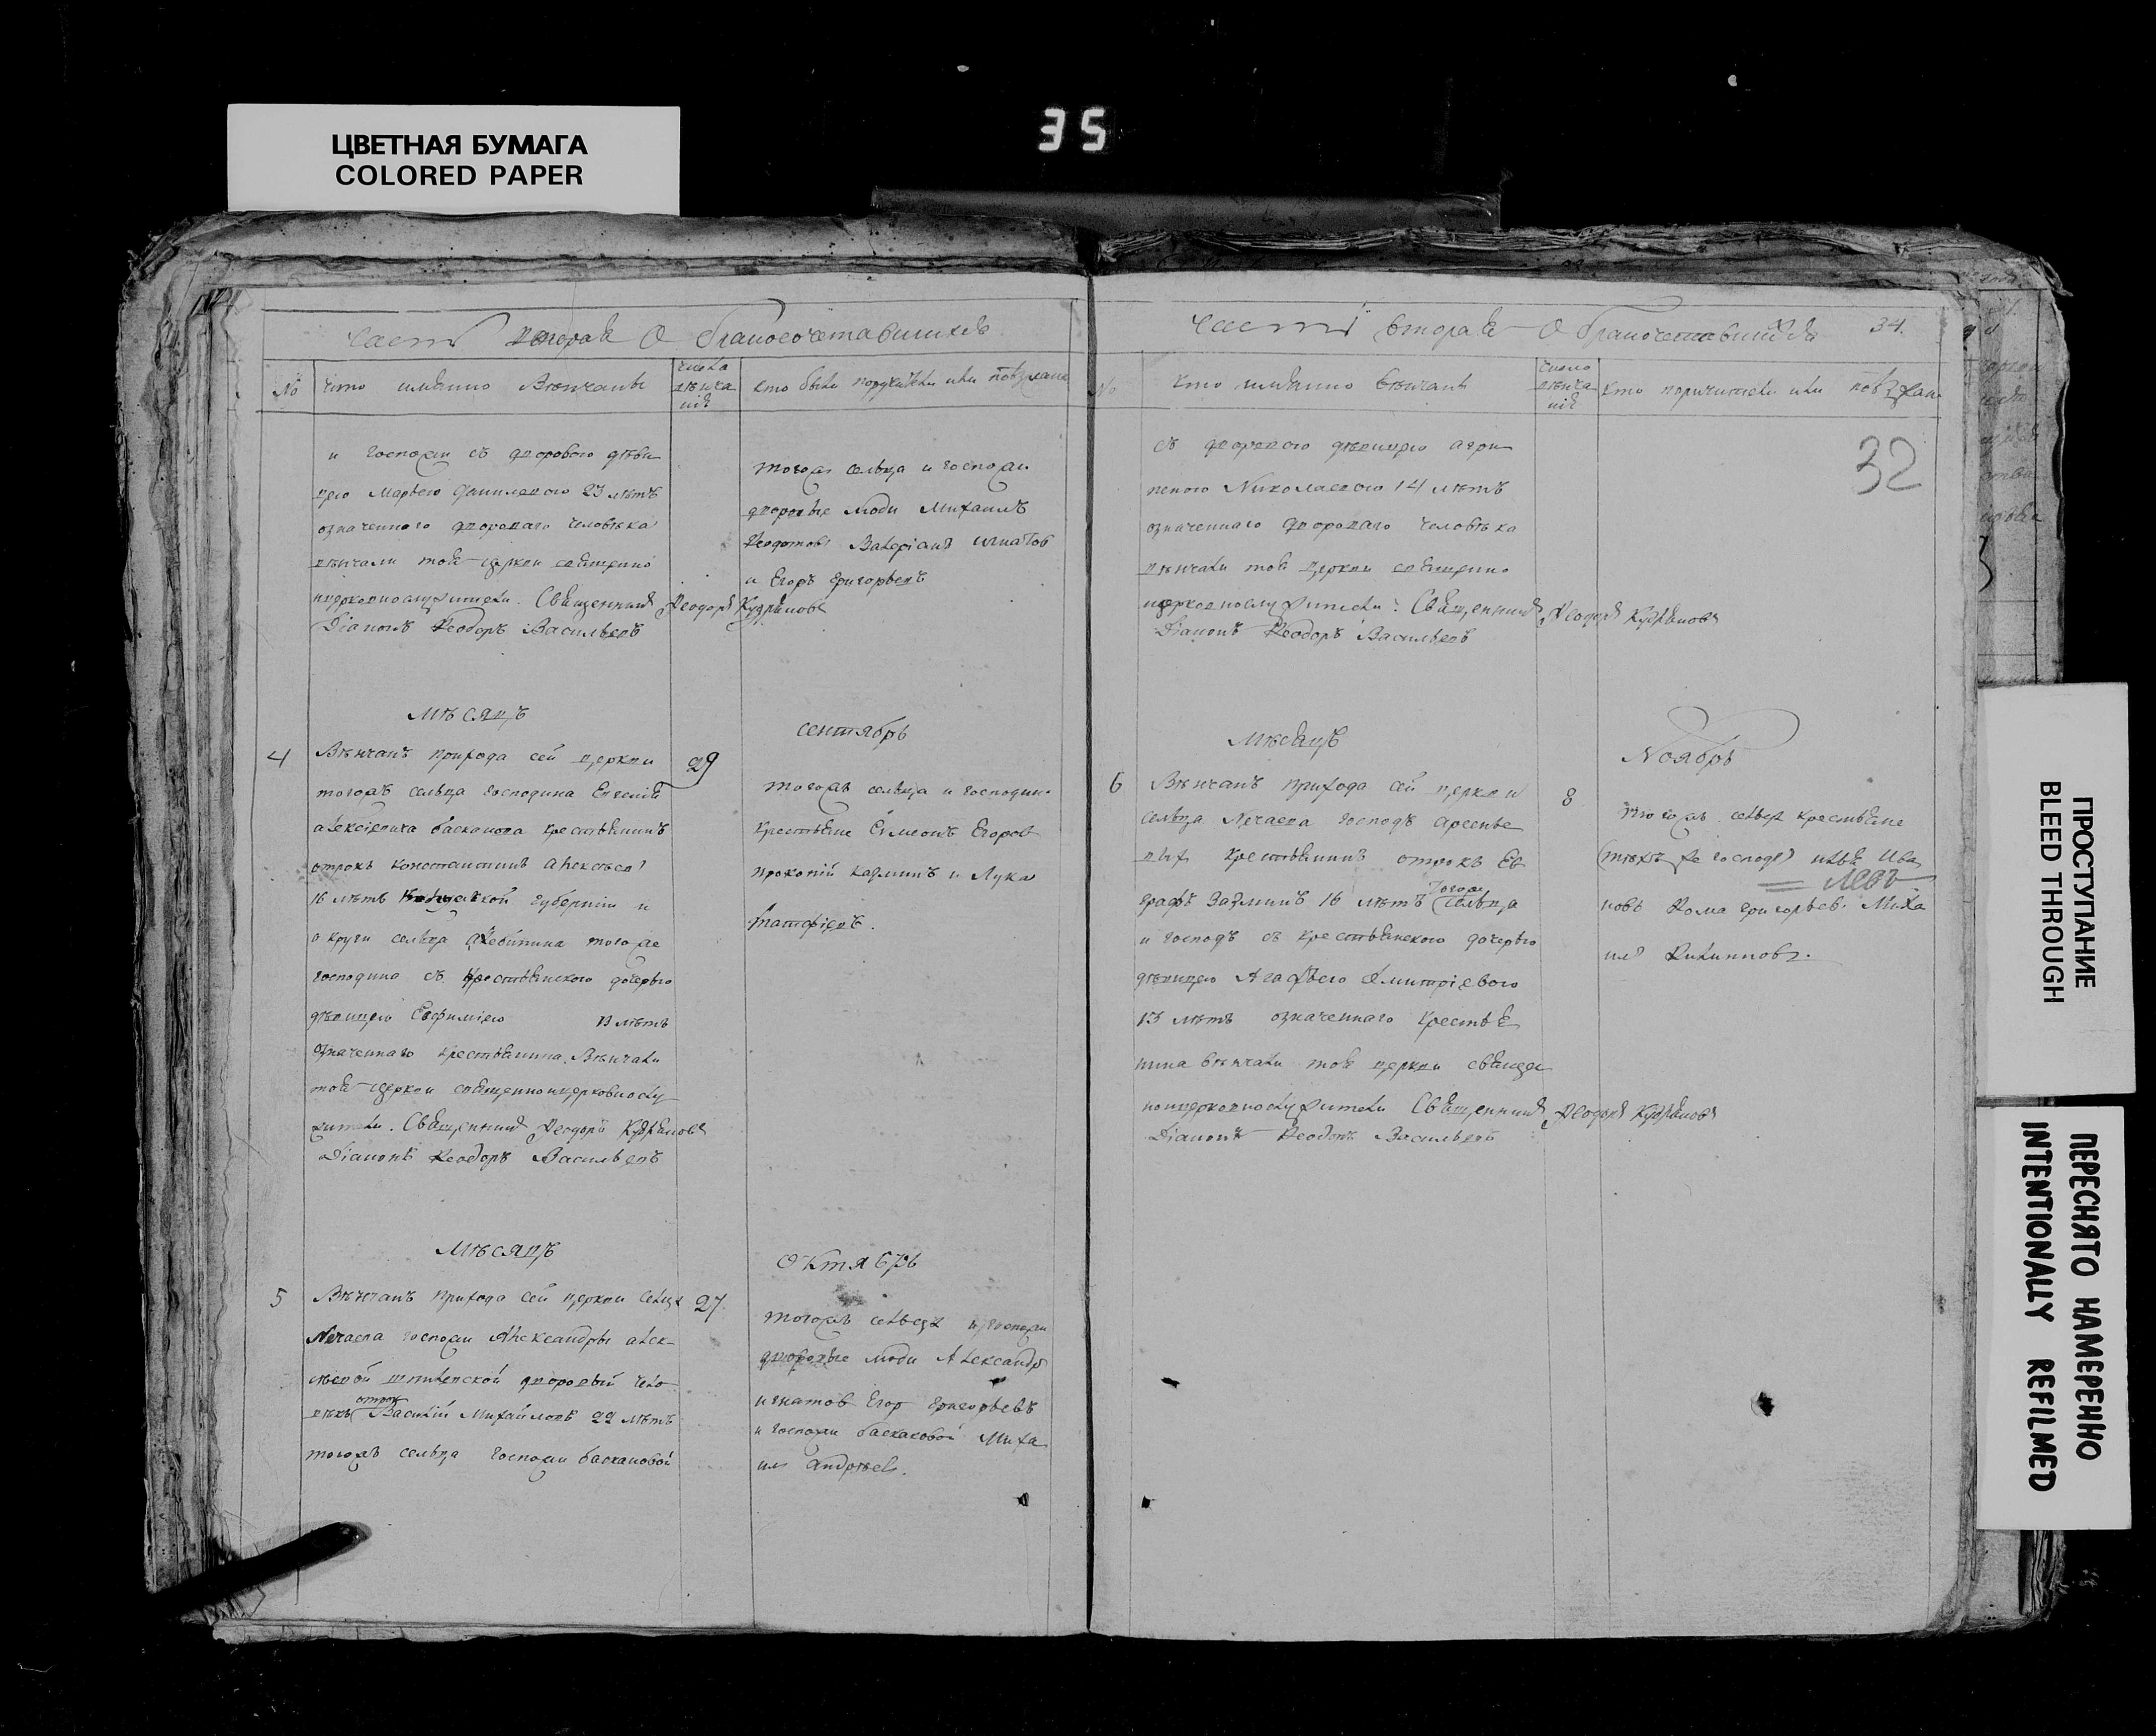 ЦВЕТНАЯ БУМАГА
COLORED PAPER
35
часть вторая О бракосочетавшихся
№
кто имянно венчаны
числа венчанiя
кто были поручители или поезжане
и госпожи съ дворовою деви
цею Марьею Даниловою 23 летъ
означенного двороваго человека
венчали тоя церкви священно
ицерковнослужители. Священникъ Ѳеодоръ Кудряновъ
Дiаконъ Ѳеодоръ Васильевъ
тогожъ сельца и госпожи
дворовые люди Михаилъ
Ѳедотовъ Валерiанъ Игнатов
и Егоръ Григорьевъ
Мѣсяцъ
сентябрь
4
Вѣнчанъ прихода сей церкви
тогожъ сельца господина Евгенiя
алексiевича баскакова крестьянинъ
отрокъ константинъ алексѣевъ
16 лѣтъ губернiи и
округи сельца тогоже
господина съ крестьянскою дочерью
дѣвицею Евфимiею 13 лѣтъ
означеннаго крестьянина. Вѣнчали
тоя церкви священноицерковнослу
жители. Священникъ Ѳеодоръ Кудряновъ
Дiаконъ Ѳеодоръ Васильевъ
29
тогожъ сельца и господина
крестьяне Симеонъ Егоров
прокопiй казминъ и Лука
Мѣсяцъ
октябрь
5
Вѣнчанъ прихода сей церкви сельца
Нечаева госпожи Александры алек
сѣевой дворовый чело
вѣкъ отрок Василiй Михайловъ 22 лѣтъ
тогожъ сельца госпожи баскаковой
27
тогожъ сельца и госпожи
дворовые люди Александръ
игнатов Егор Григорьевъ
и госпожи баскаковой Миха
илъ андрѣевъ.
часть вторая О бракочетавшихся
34.
№
кто имянно вѣнчаны
число вѣнчанiя
кто поручители или поезжан
32
съ дворовою дѣвицею агри
пеною Николаевою 14 лѣтъ
означеннаго двороваго человѣка
вѣнчали тоя церкви священно
ицерковнослужители. Священникъ Ѳеодоръ Кудряновъ
Дiаконъ Ѳеодоръ Васильевъ
Мѣсяцъ
Ноябрь
6
Вѣнчанъ прихода сей церкви
сельца Нечаева господъ арсенье
выхъ крестьянинъ отрокъ Ев
графъ Казминъ 16 лѣтъ тогожъ сельца
и господъ съ крестьянскою дочерью
дѣвицею Агафьею Дмитрiевою
13 лѣтъ означеннаго крестья
нина вѣнчали тоя церкви священ
ноицерковнослужители Священникъ Ѳеодоръ Кудряновъ
Дiаконъ Ѳеодоръ Васильевъ
8
тогожъ сельца крестьяне
(тѣхъ же господъ) илья Ива
левъ
новъ Ѳома григорьев. Миха
илъ Филипповъ.
ПРОСТУПАНИЕ
BLEED THROUGH
ПЕРЕСНЯТО НАМЕРЕННО
INTENTIONALLY REFILMED